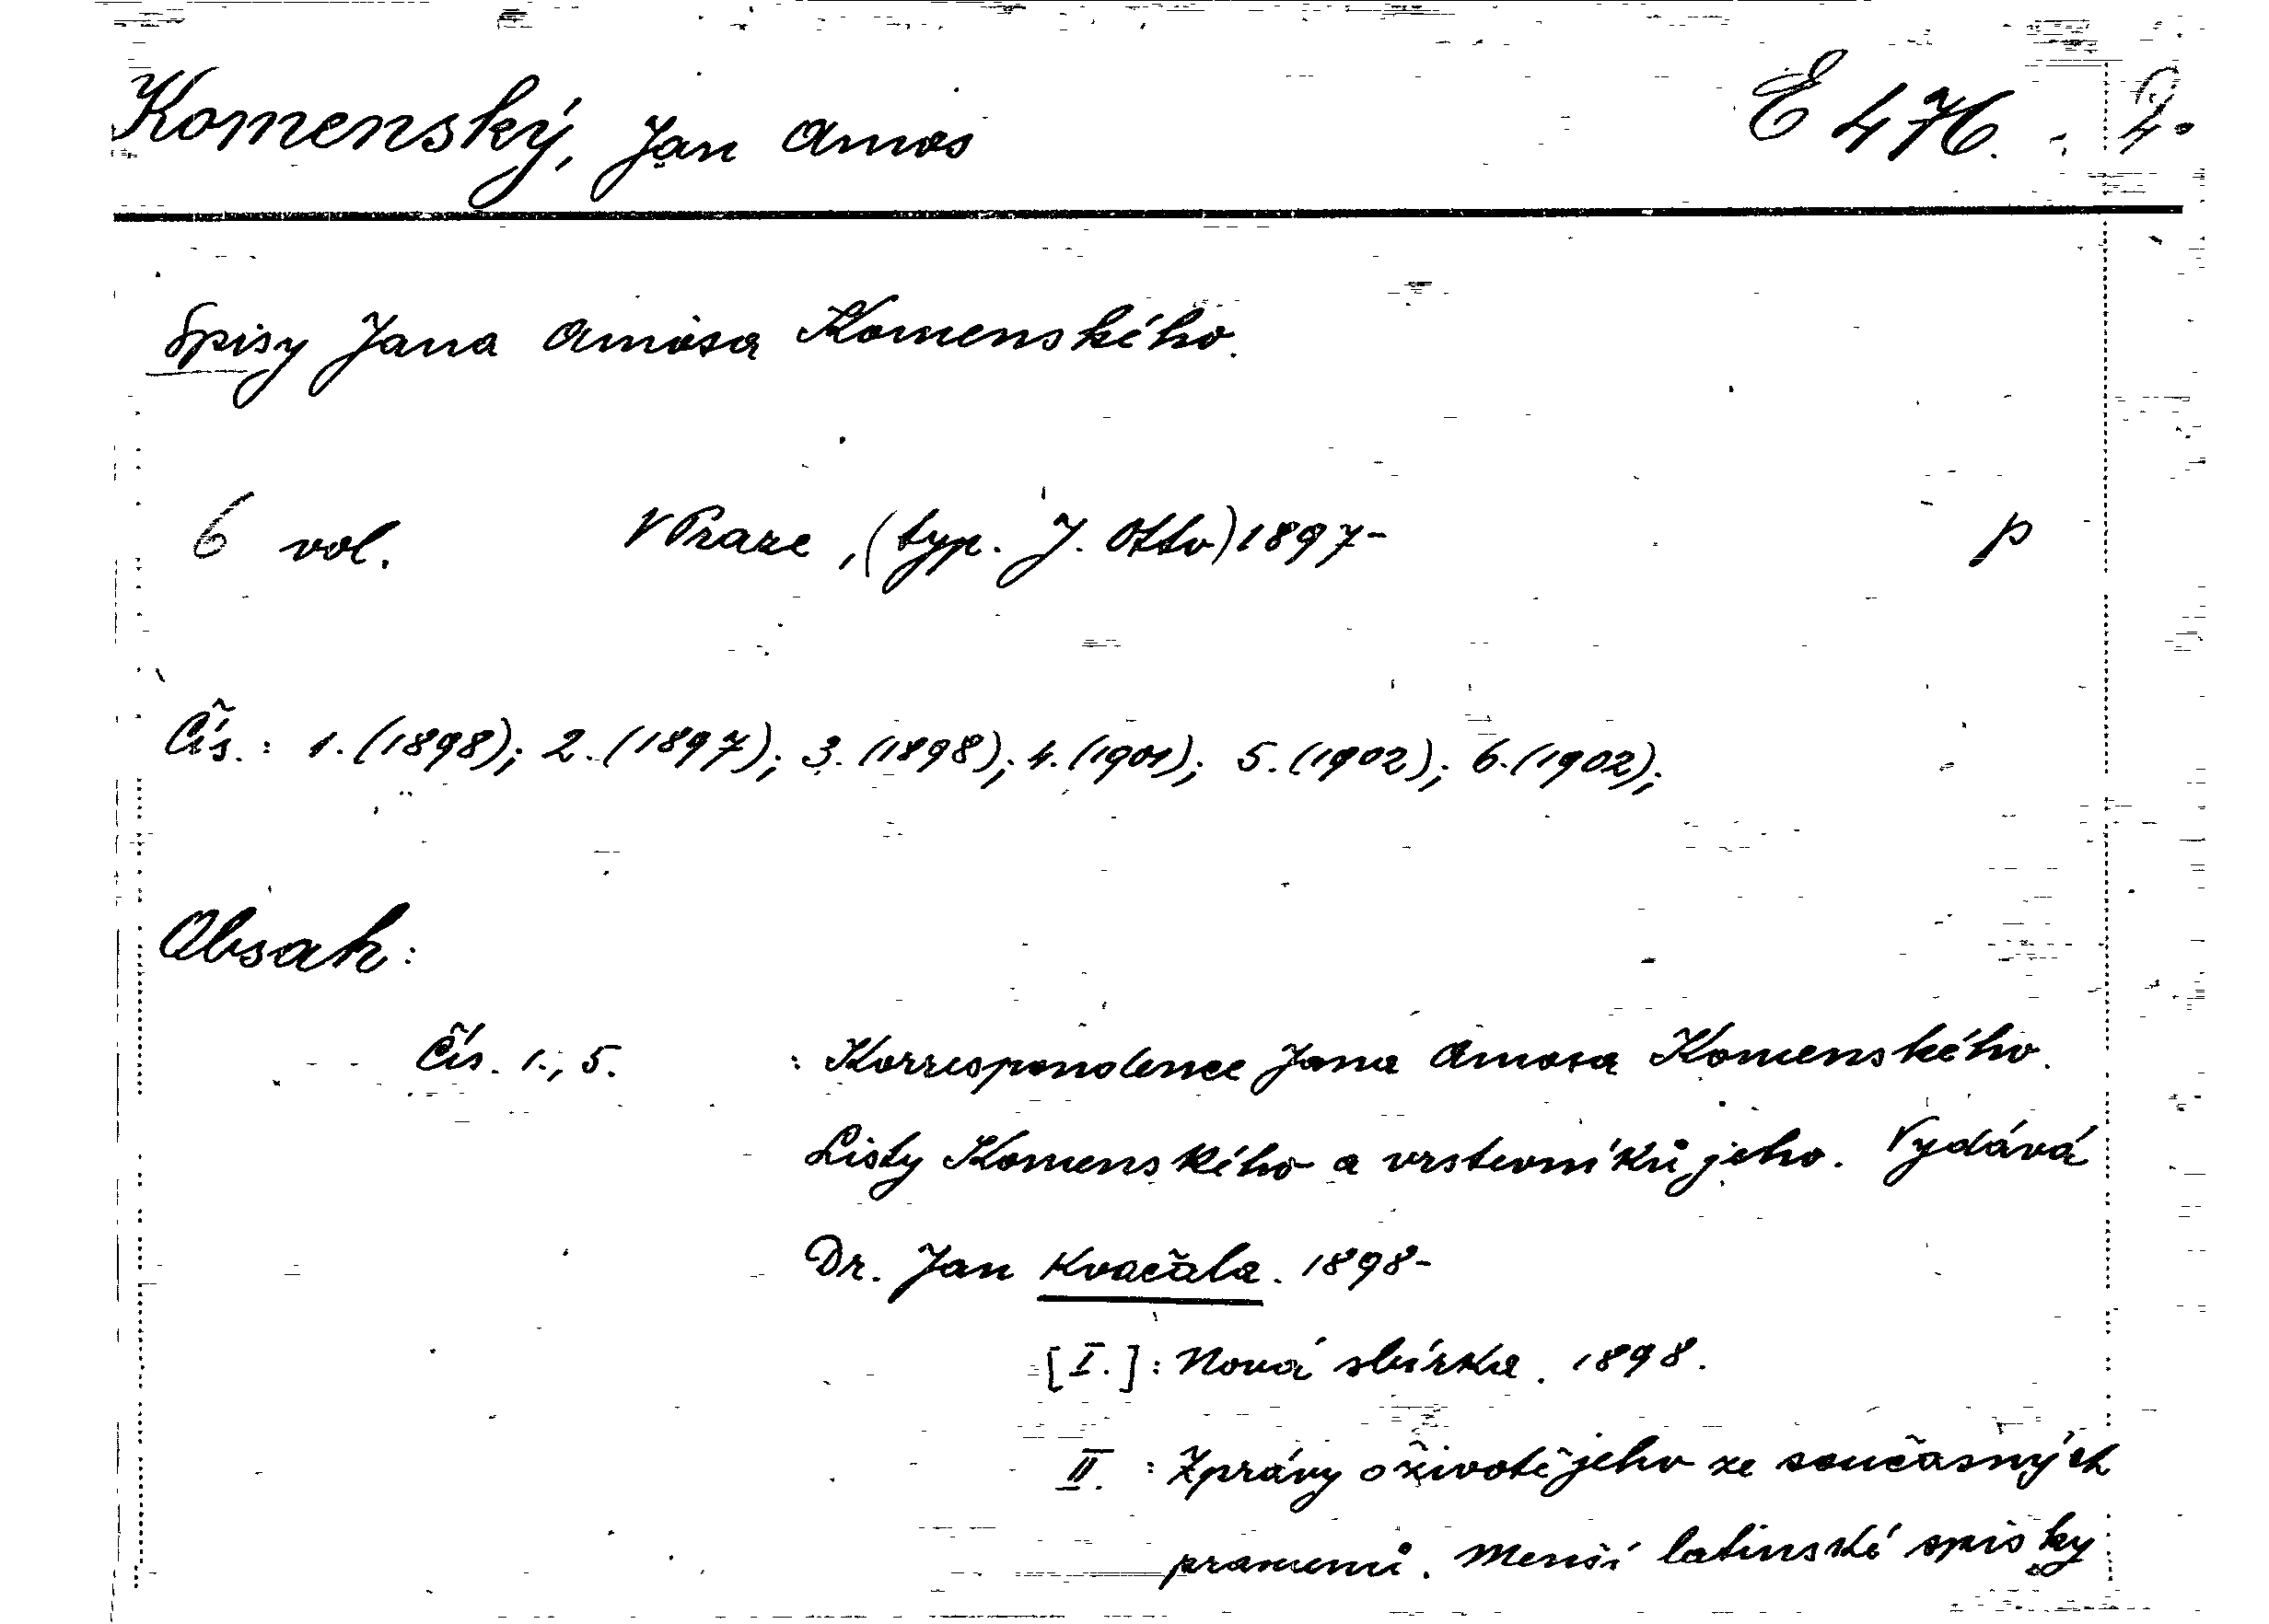 Komenský, Jan Amos E 476.
Spisy Jana Amosa Komenského.
6 vol. V Praze, (typ. J. Otto) 1897- p
Čís.: 1. (1898); 2. (1897); 3. (1898); 4. (1901); 5. (1902); 6. (1902);
Obsah:
Čís. 1., 5. : Korrespondence Jana Amosa Komenského.
Listy Komenského a vrstevníků jeho. Vydává
Dr. Jan Kvačala. 1898-
[I.]: Nová sbírka. 1898.
II. : Zprávy o životě jeho ze současných
pramenů. Menší latinské spisky